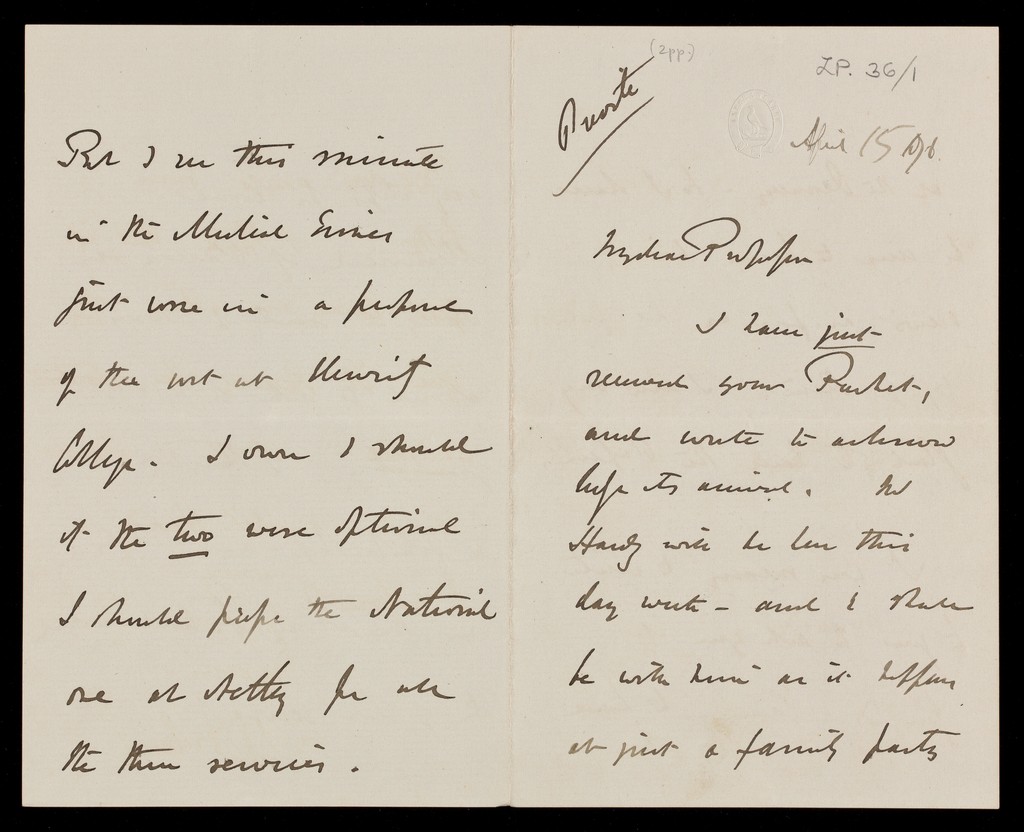 (2pp.)
LP. 36/1
Private
April 15
My dear Professor
I have just
received your Packet,
and write to acknow
ledge its arrival. Mr
Hardy will be here this
day week - and I shall
be with him as it happens
at just a family party
But I see this minute
in the Medical Times
just come in a proposal
of the sort at University
College. I own I should
if the two were optional
I should prefer the National
one at Netley for all
the three services.